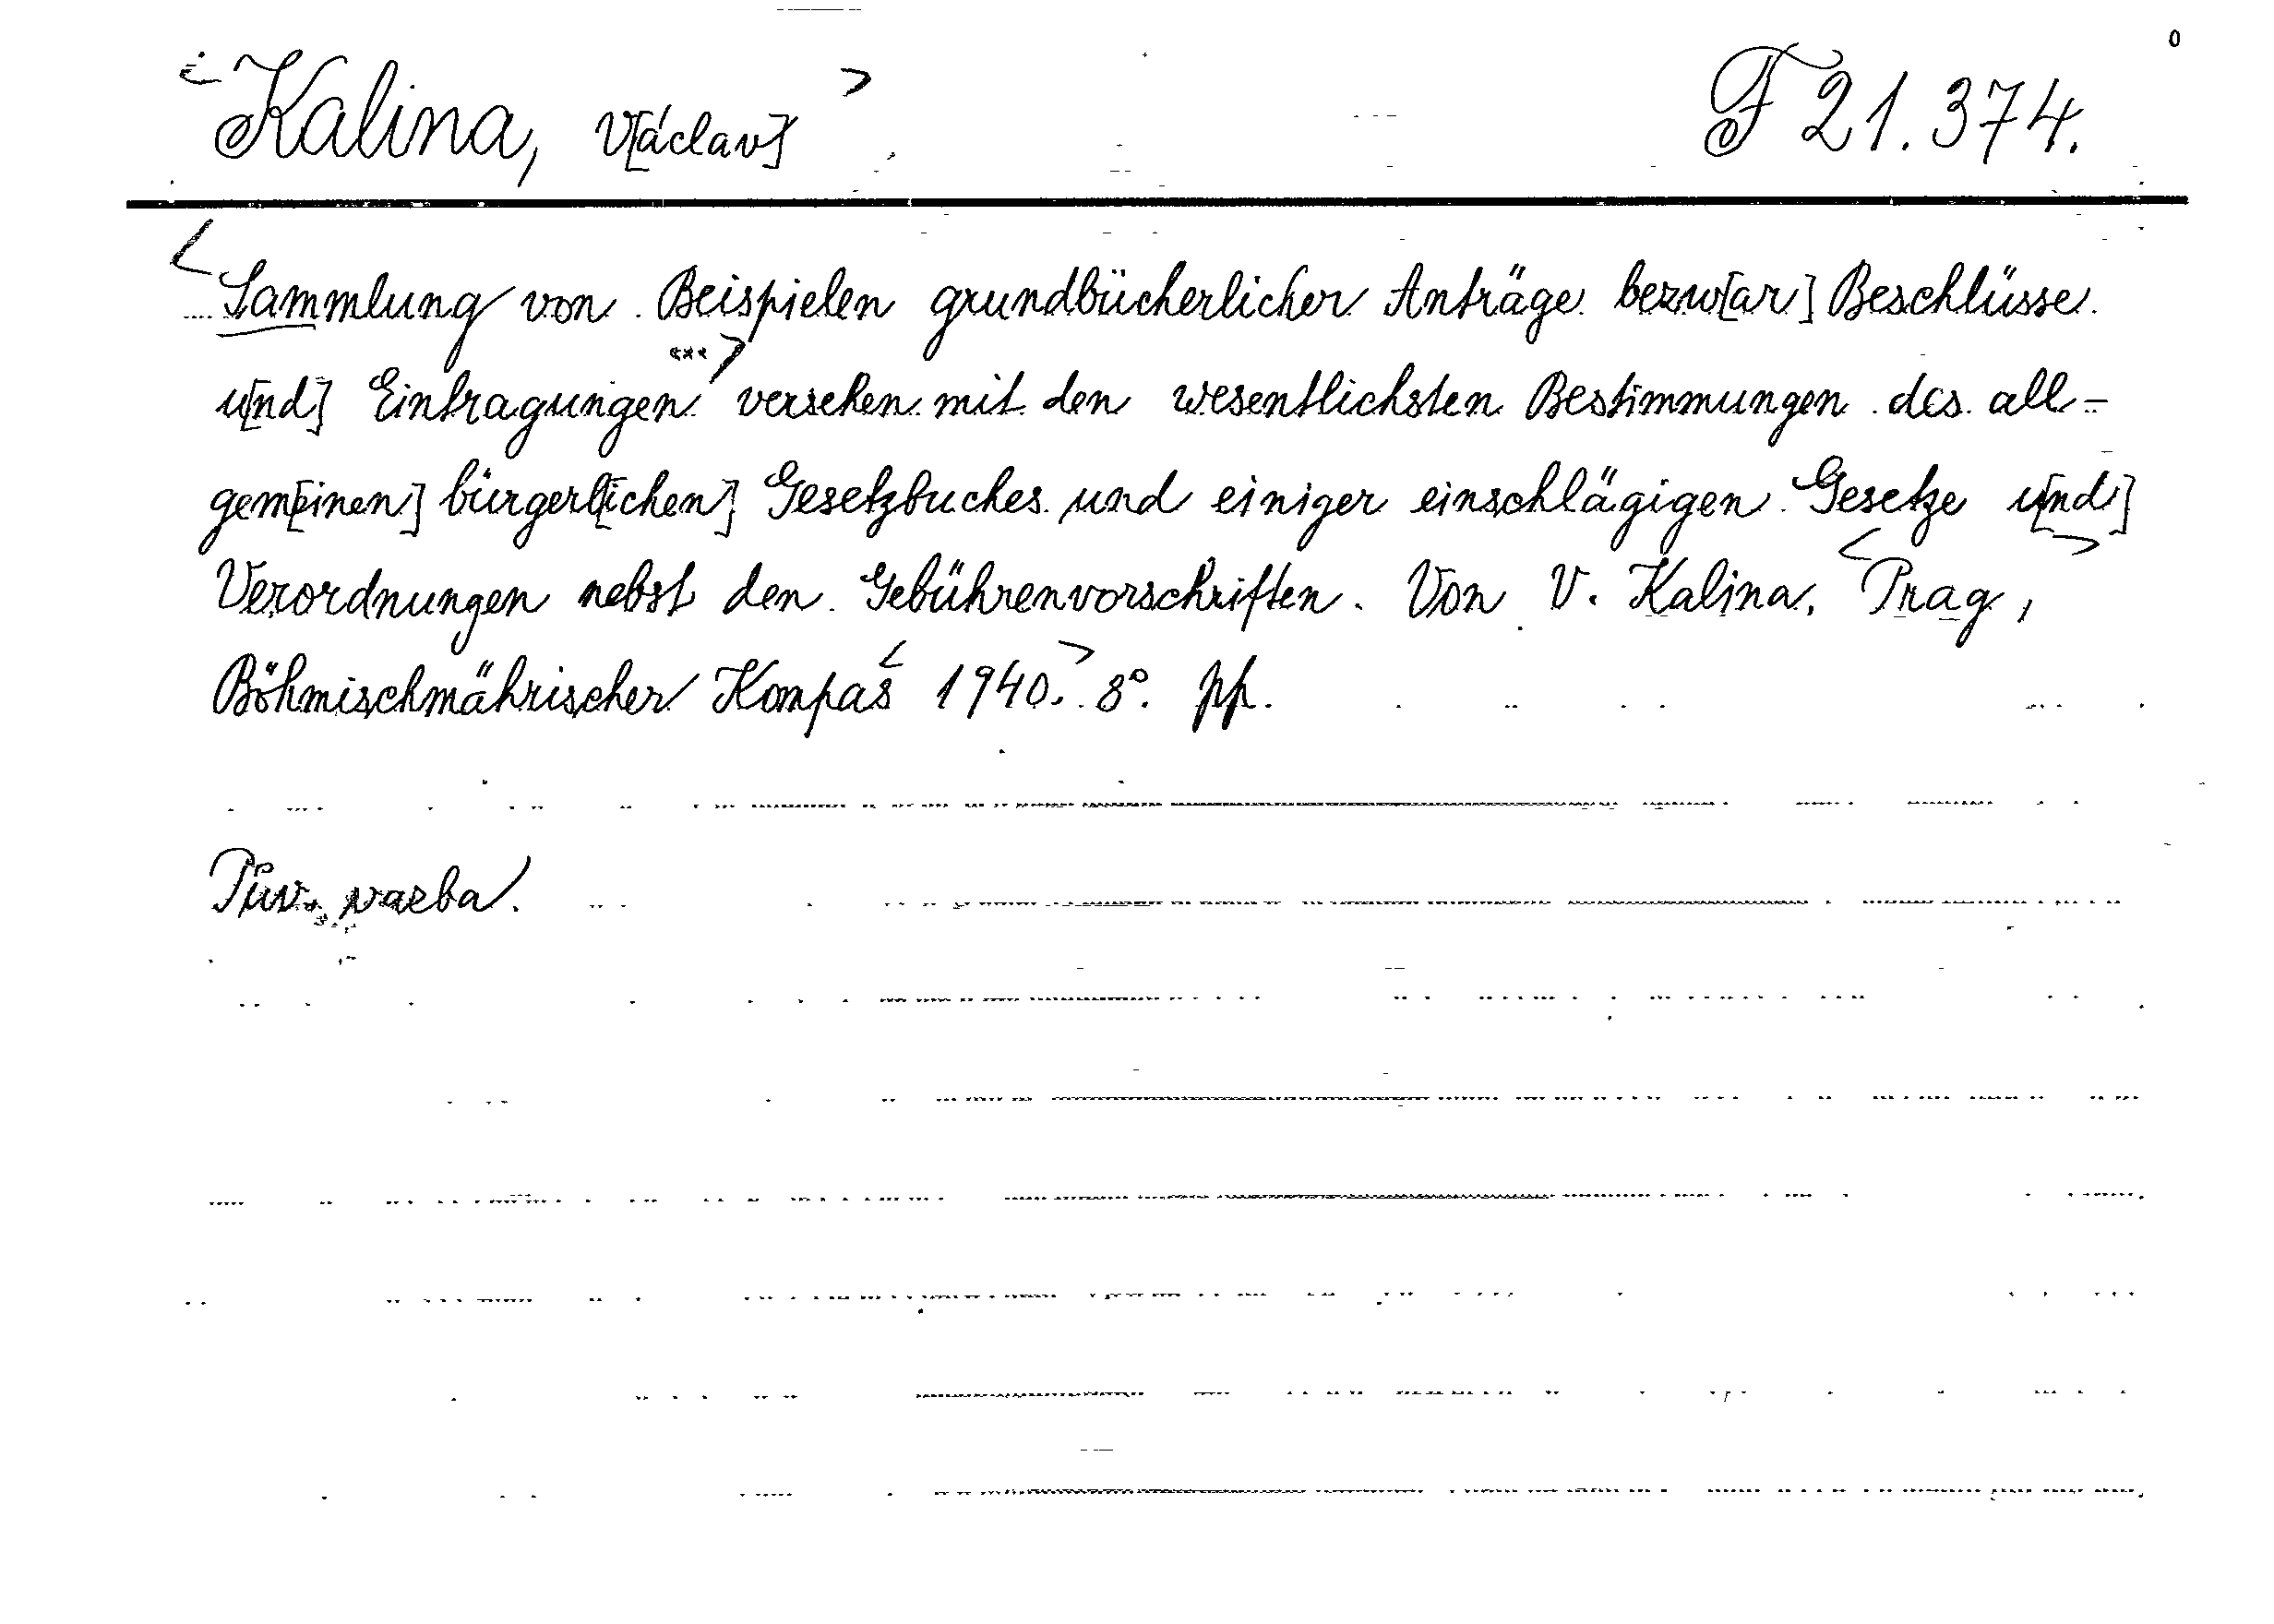 <Kalina, V[áclav]> F 21.374.
<Sammlung von Beispielen grundbücherlicher Anträge bezw[ar] Beschlüsse
u[nd] Eintragungen ...> versehen mit den wesentlichsten Bestimmungen des all-
gem[einen] bürgerl[ichen] Gesetzbuches und einiger einschlägigen Gesetze u[nd]
Verordnungen nebst den Gebührenvorschriften. Von V. Kalina. <Prag>,
Böhmischmährischer Kompas <1940.> 8°. pp.
Pův. vazba.